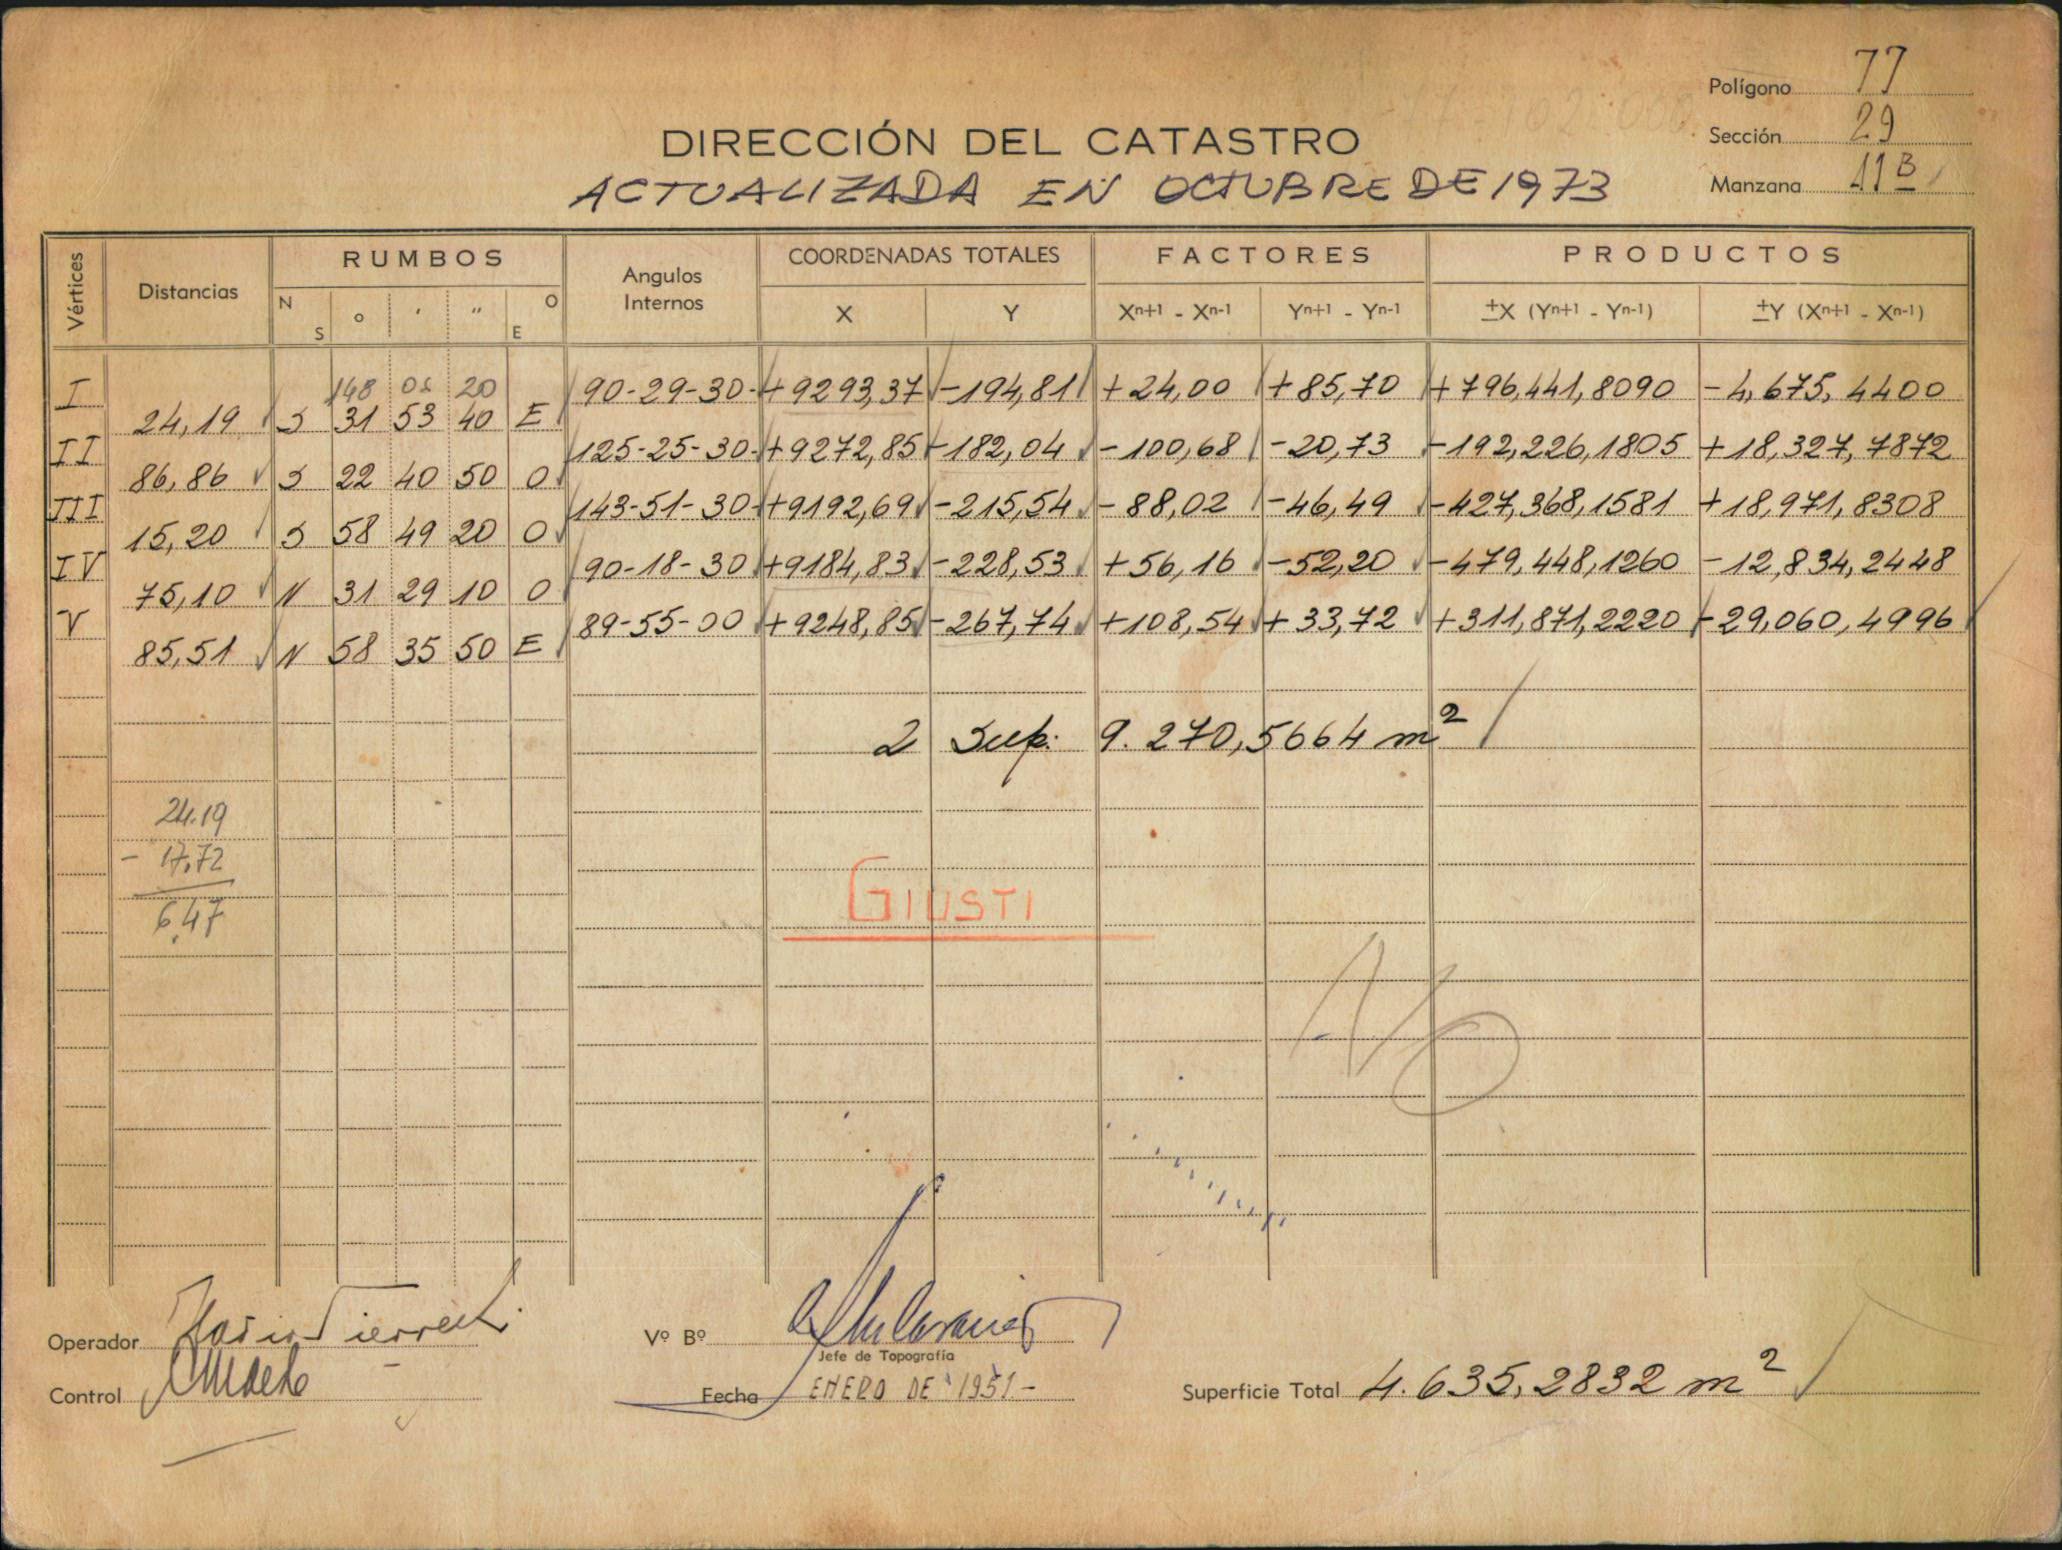 Polígono 77
Sección 29
Manzana 11 B
DIRECCIÓN DEL CATASTRO
ACTUALIZADA EN OCTUBRE DE 1973
Vértices Distancias RUMBOS Angulos Internos COORDENADAS TOTALES FACTORES PRODUCTOS
N S ° ' " O E X Y Xn+1 - Xn-1 Yn+1 - Yn-1 ±X (Yn+1 - Yn-1) ±Y (Xn+1 - Xn-1)
148 20
I 90-29-30 +9293,37 -194,81 +24,00 +85,70 +796,441,8090 -4,675,4400
24,19 S 31 53 40 E
II 125-25-30 +9272,85 -182,04 -100,68 -20,73 -192,226,1805 +18,327,7872
86,86 S 22 40 50 O
III 143-51-30 +9192,69 -215,54 -88,02 -46,49 -427,368,1581 +18,971,8308
15,20 S 58 49 20 O
IV 90-18-30 +9184,83 -228,53 +56,16 -52,20 -479,448,1260 -12,834,2448
75,10 N 31 29 10 O
V 89-55-00 +9248,85 -267,74 +108,54 +33,72 +311,871,2220 -29,060,4996
85,51 N 58 35 50 E
2 Sup. 9.270,5664 m²
24.19
- 17,72
6,47
GIUSTI
Operador
Vº Bº
Jefe de Topografía
Control
Fecha ENERO DE 1951-
Superficie Total 4.635,2832 m²